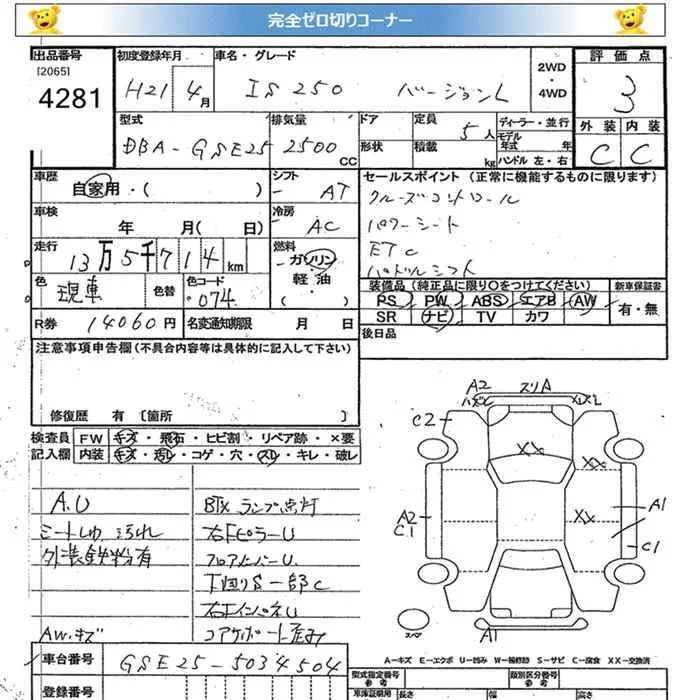 完全ゼロ切りコーナー
出品番号 初度登録年月 車名・グレード 2WD・4WD 評価点
[2065]
4281 H21 4月 IS250 バージョンL 3
型式 排気量 ドア 定員 ディーラー・並行 外装 内装
DBA-GSE25 2500CC 形状 積載 5人 kg モデル年式 年 ハンドル 左・右 C C
車歴 自家用・( ) シフト - AT セールスポイント (正常に機能するものに限ります)
車検 年 月( 日) 冷房 AC クルーズコントロール
パワーシート
走行 13万5千714km 燃料 ガソリン・軽油・( ) ETC
パドルシフト
色 現車 色替 色コード 074 装備品(純正品に限り○をつけてください) 新車保証書
PS PW ABS エアB AW 有・無
R券 14060円 名変通知期限 月 日 SR ナビ TV カワ
後日品
注意事項申告欄(不具合内容等は具体的に記入して下さい)
修復歴 有 [箇所 ]
検査員記入欄 FW キズ・飛石・ヒビ割・リペア跡・×要
内装 キズ・汚レ・コゲ・穴・スレ・キレ・破レ
A.U
外装鉄粉有
AW.キズ
ランプ点灯
右Fピラー U
フロアメンバー U
下回り S 一部 C
右インパネ U
コアサポート 歪み
A2 スリA
C2
XX
XX
XX
A2
C1
A1
C1
A1
スペア
A=キズ E=エクボ U=凹み W=補修跡 S=サビ C=腐食 XX=交換済
車台番号 GSE25-5034504
型式指定番号 参考 類別区分番号 参考
登録番号 車体証明用 長さ 幅 高さ